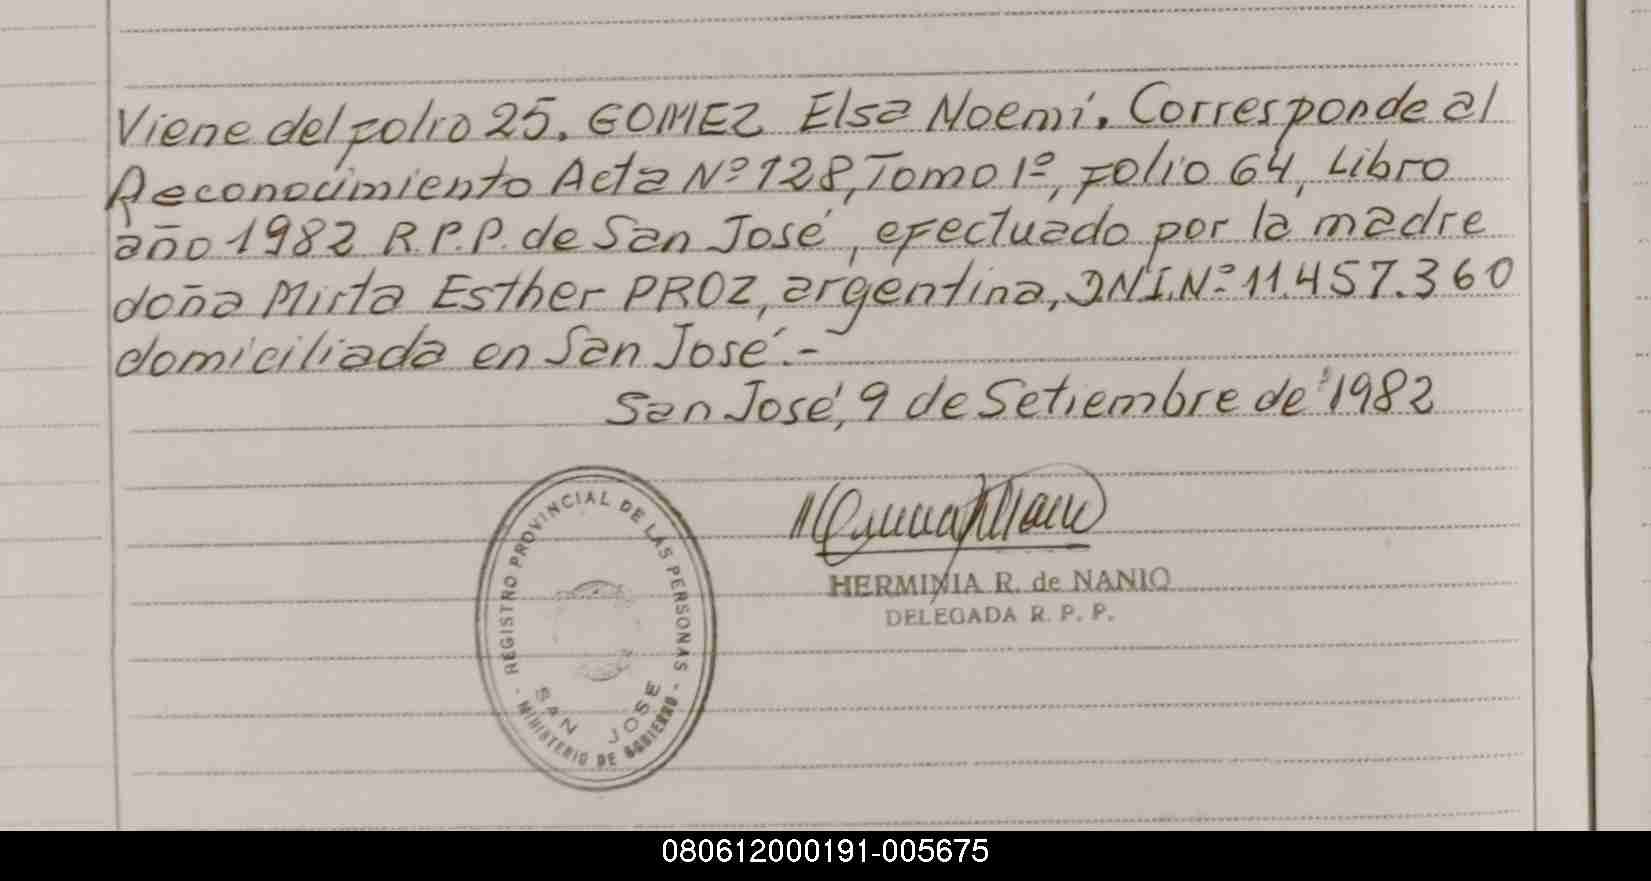 Viene del folio 25. GOMEZ Elsa Noemí. Corresponde al
Reconocimiento Acta Nº 128, Tomo 1º, Folio 64, Libro
año 1982 R.P.P. de San José, efectuado por la madre
doña Mirta Esther PROZ, argentina, DNI.Nº 11.457.360
domiciliada en San José.-
San José, 9 de Setiembre de 1982
REGISTRO PROVINCIAL DE LAS PERSONAS
SAN JOSE
MINISTERIO DE GOBIERNO
HERMINIA R. de NANIO
DELEGADA R. P. P.
080612000191-005675